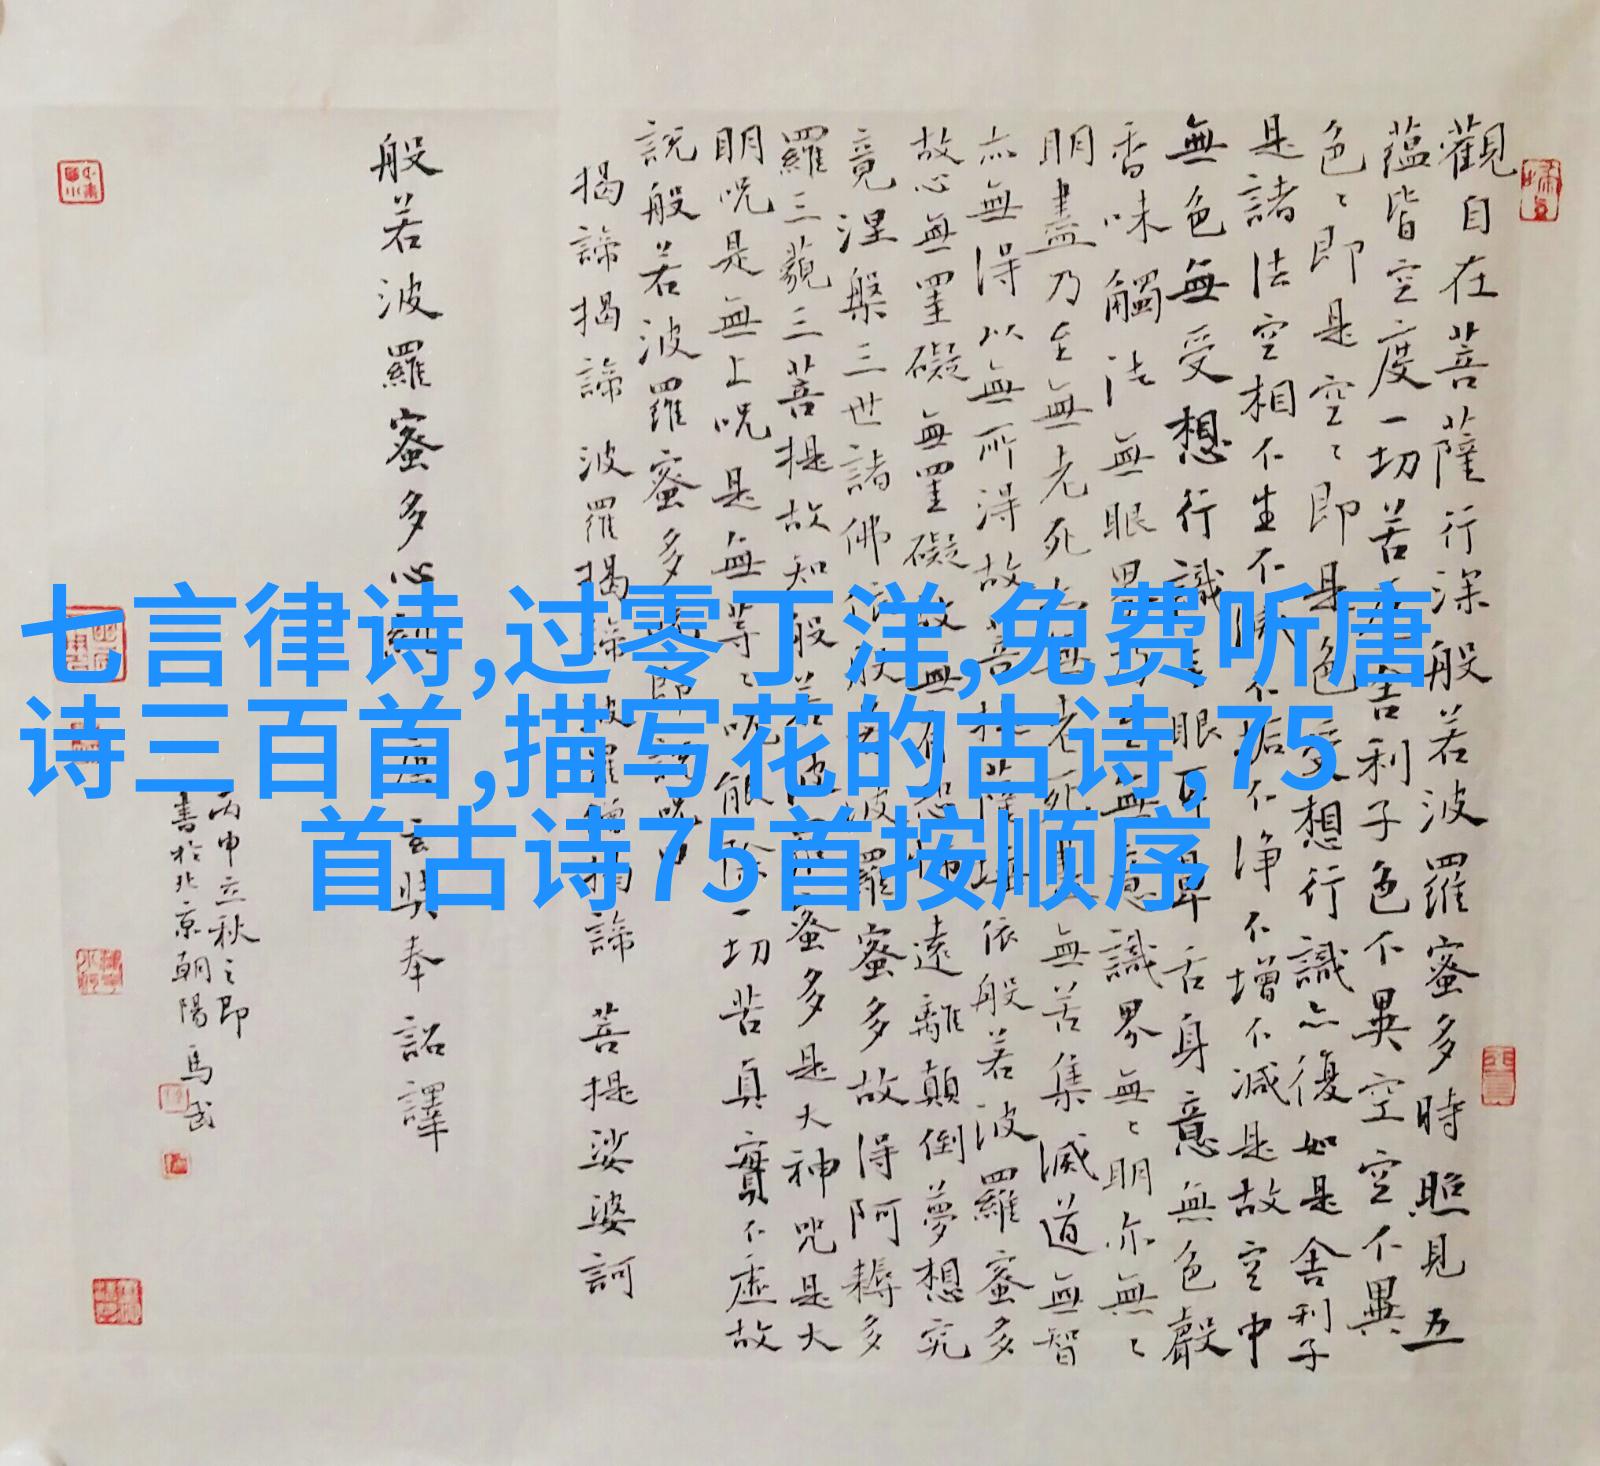 七言律诗,过零丁洋,免费听唐
诗三百首,描写花的古诗,75
首古诗75首按顺序
觀自在菩薩行深般若波羅蜜多時照見五
蘊皆空度一切苦厄舍利子色不異空空不異
色〻即是空〻即是色受想行識亦復如是舍利子
是諸法空相不生不滅不垢不淨不增不減是故空中
無色無受想行識無眼耳鼻舌身意無色聲
香味觸法無眼界乃至無意識界無〻明亦無〻
明盡乃至無老死亦無老死盡無苦集滅道無智
亦無得以無所得故菩提薩埵依般若波羅蜜多
故心無罣礙無罣礙故無有恐怖遠離顛倒夢想究
竟涅槃三世諸佛依般若波羅蜜多故得阿耨多
羅三藐三菩提故知般若波羅蜜多是大神咒是大
明呪是無上呪是無等〻呪能除一切苦真實不虛故
說般若波羅蜜多呪即說呪曰
揭諦揭諦波羅揭諦波羅僧揭諦菩提娑婆訶
般若波羅蜜多心經唐玄奘奉詔譯
丙申立秋之即
書於北京朝陽馬武